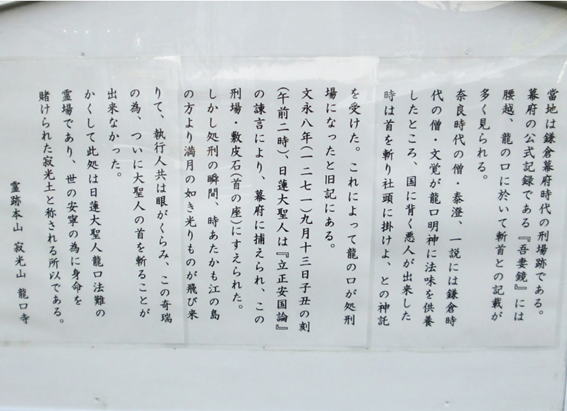 當地は鎌倉幕府時代の刑場跡である。
幕府の公式記録である『吾妻鏡』には
腰越、龍の口に於いて斬首との記載が
多く見られる。
奈良時代の僧・泰澄、一説には鎌倉時
代の僧・文覚が龍口明神に法味を供養
したところ、国に背く悪人が出来した
時は首を斬り社頭に掛けよ、との神託
を受けた。これによって龍の口が処刑
場になったと旧記にある。
文永八年(一二七一)九月十三日子丑の刻
(午前二時)、日蓮大聖人は『立正安国論』
の諫言により、幕府に捕えられ、この
刑場・敷皮石(首の座)にすえられた。
しかし処刑の瞬間、時あたかも江の島
の方より満月の如き光りものが飛び来
りて、執行人共は眼がくらみ、この奇瑞
の為、ついに大聖人の首を斬ることが
出来なかった。
かくして此処は日蓮大聖人龍口法難の
霊場であり、世の安寧の為に身命を
賭けられた寂光土と称される所以である。
霊跡本山 寂光山 龍口寺